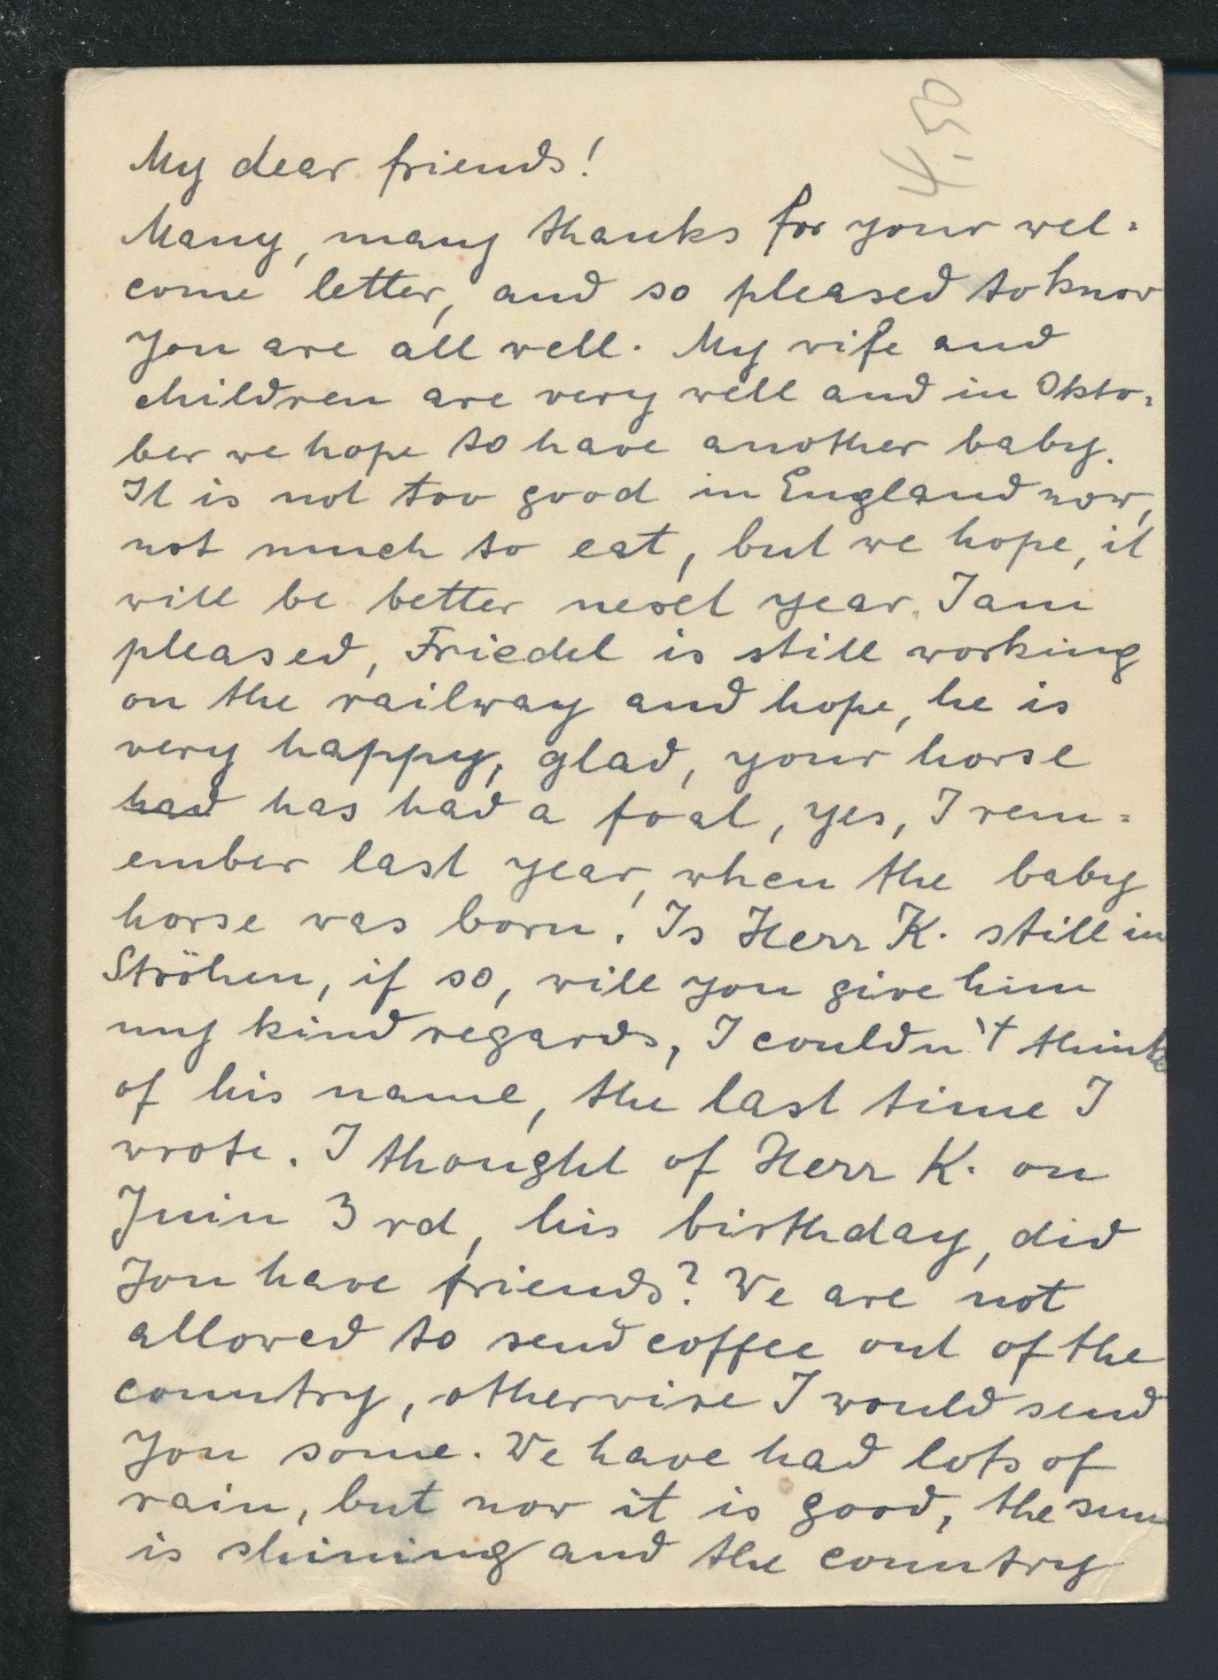 My dear friends!
Many, many thanks for your wel=
come letter, and so pleased to know
you are all well. My wife and
children are very well and in Okto=
ber we hope to have another baby.
It is not too good in England now,
not much to eat, but we hope, it
will be better next year. I am
pleased, Friedel is still working
on the railway and hope, he is
very happy, glad, your horse
had has had a foal, yes, I rem=
ember last year, when the baby
horse was born! Is Herr K. still in
Ströhen, if so, will you give him
my kind regards, I couldn't think
of his name, the last time I
wrote. I thought of Herr K. on
Juin 3rd, his birthday, did
you have friends? We are not
allowed to send coffee out of the
country, otherwise I would send
you some. We have had lots of
rain, but now it is good, the sun
is shining and the country